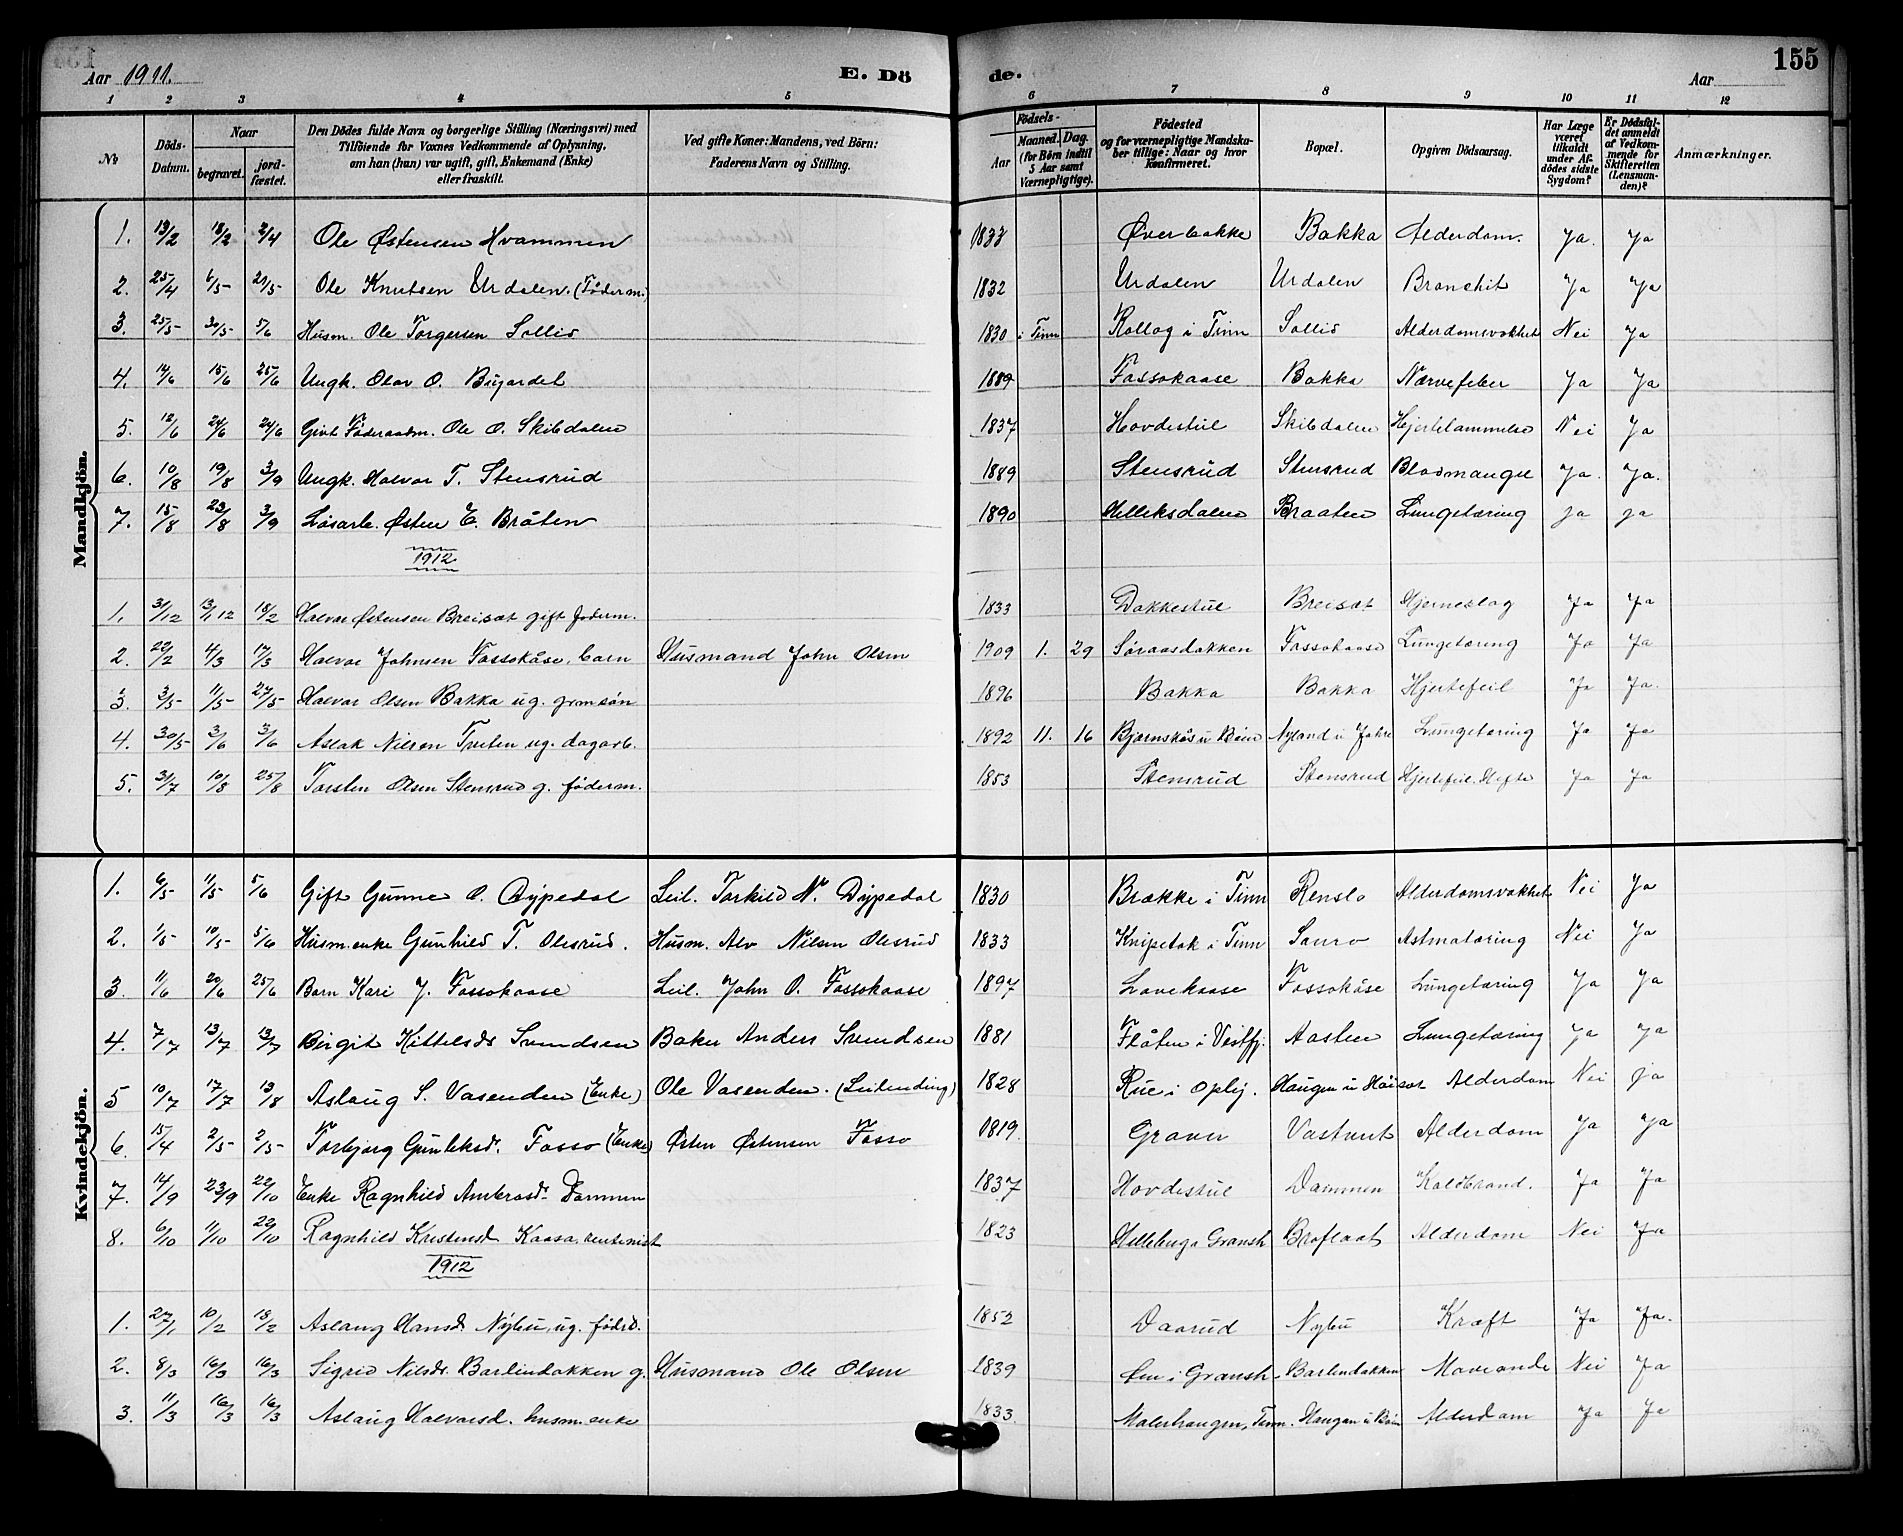 Aar 1911. E. Dö de. Aar 155
1 2 3 4 5 6 7 8 9 10 11 12
No Döds-Datum. Naar begravet. jord-fæstet. Den Dödes fulde Navn og borgerlige Stilling (Næringsvei) med Tilföiende for Voxnes Vedkommende af Oplysning, om han (hun) var ugift, gift, Enkemand (Enke) eller fraskilt. Ved gifte Koner: Mandens, ved Börn: Faderens Navn og Stilling. Födsels- Aar Maaned. Dag. (for Börn indtil 5 Aar samt Værnepligtige). Födested og for værnepligtige Mandskaber tillige: Naar og hvor konfirmeret. Bopæl. Opgiven Dödsaarsag. Har Læge været tilkaldt under Afdödes sidste Sygdom? Er Dödsfaldet anmeldt af Vedkommende for Skifteretten (Lensmanden)? Anmærkninger.
Mandkjön.
1. 13/2 18/2 2/4 Ole Østensen Hvammen 1833 Øverbakke Bakka Alderdom. Ja. Ja
2. 25/4 6/5 21/5 Ole Knutsen Urdalen. (Föderm.) 1832 Urdalen Urdalen Bronchit Ja Ja
3. 25/5 30/5 5/6 Husm. Ole Torgersen Sollid 1830 i Tinn Kollog i Tinn Sollid Alderdomsvakhet Nei Ja
4. 14/6 15/6 25/6 Ungk. Olav O. Bugardet 1889 Fossokaase Bakka Nærvefeber Ja Ja
5. 12/6 24/6 24/6 Givt Föderaadm. Ole O. Skibdalen 1837 Hovdestul Skibdalen Hjertelammelse Nei Ja
6. 10/8 19/8 3/9 Ungk. Halvor T. Stensrud 1889 Stensrud Stensrud Blodmangel Ja. Ja.
7. 15/8 23/8 3/9 Løsarb. Østen E. Bråten 1890 Helleksdalen Braaten Lungetæring ja ja
1912
1. 31/12 13/1 12 18/2 Halvor Østensen Breisæt gift föderm. 1833 Bakkestul Breisæt Hjerneslag Ja Ja
2. 22/2 4/3 17/3 Halvor Johnsen Fossokåse, barn Husmand John Olsen 1909 1. 29 Søraasbakken Fossokaase Lungetæring Ja Ja
3. 3/5 11/5 27/5 Halvor Olsen Bakka ug. grmsön 1896 Bakka Bakka Hjertefeil Ja Ja.
4. 30/5 3/6 3/6 Aslak Nilsen Tveten ug. dagarb. 1892 11. 16 Bjørnskås u Böen Nyland u Johre Lungetæring Ja Ja
5. 31/7 10/8 25/8 Torsten Olsen Stensrud g. föderm. 1853 Stensrud Stensrud Hjertefeil, Hofte Ja Ja
Kvindekjön.
1. 6/5 11/5 5/6 Gift Gunne O. Dypedal Leil. Torkild N. Dypedal 1830 Brække i Tinn Renslo Alderdomsvakhet Nei Ja
2. 1/5 10/5 5/6 Husm.enke Gunhild T. Olesrud. Husm. Alv Nilsen Olesrud 1833 Knipetak i Tinn Sauro Astmatæring Nei Ja
3. 11/6 20/6 25/6 Barn Kari J. Fossokaase Leil. John O. Fossokaase 1897 Lovekaase Fossokåse Lungetæring Ja Ja
4. 7/7 13/7 13/7 Birgit Kittelsdr Svendsen Baker Anders Svendsen 1881 Flåten i Vestfj. Aasten Lungetæring Ja Ja
5 10/7 17/7 13/8 Aslaug S. Vasenden (Enke) Ole Vasenden. (Leilending) 1828 Rue i Oplj. Haugen u Höisæt Alderdom Nei ja
6. 15/4 2/5 2/5 Torbjørg Gunleksdr. Fosso (Enke) Østen Østensen Fosso 1819 Graver Vastveit Alderdom Ja Ja
7. 14/9 23/9 22/10 Enke Ragnhild Ambrosdr. Dammen 1837 Hovdestul Dammen Koldbrand. Ja Ja
8. 6/10 11/10 22/10 Ragnhild Kristensd. Kaasa, rentenist 1823 Helleberga Gransh Broflaat Alderdom Nei Ja
1912
1. 27/1 10/2 18/2 Aslaug Hansd. Nybu, ug. föderd. 1852 Daarud Nybu Kræft Ja Ja.
2. 8/3 16/3 16/3 Sigrid Nilsdr. Barlindbakken g. Husmand Ole Olsen 1839 i Gransh. Barlindbakken Maveonde Nei Ja
3. 11/3 16/3 16/3 Aslaug Halvorsd. husm.enke 1833. Malerhaugen, Tinn. Haugen u Böen Alderdom Ja Ja